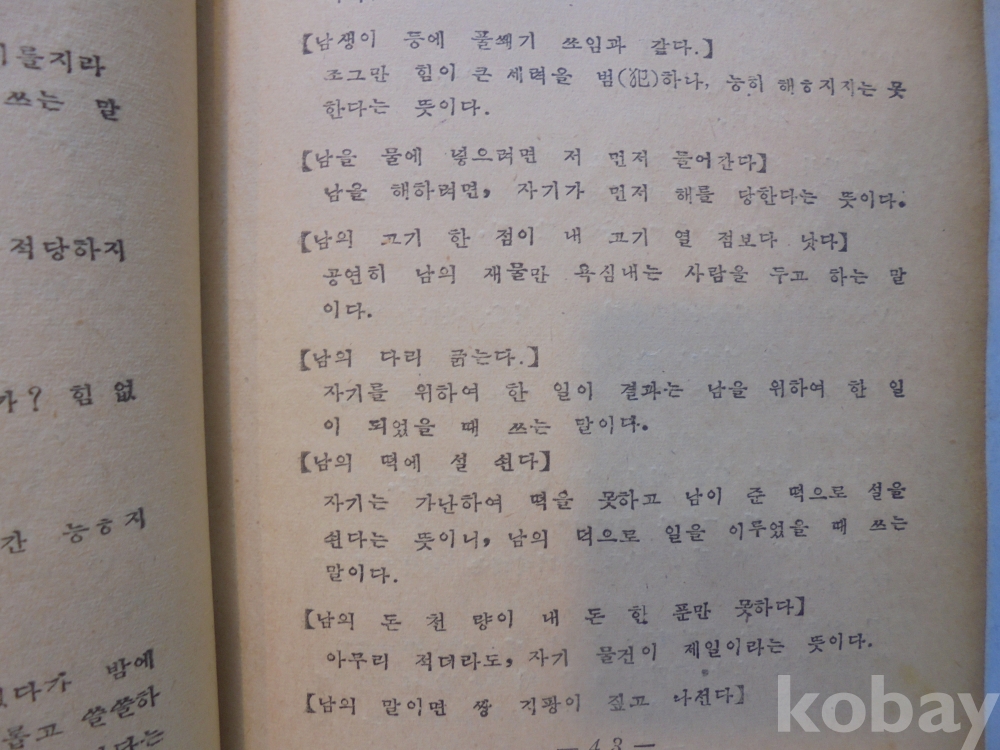 기를지라
쓰는 말
적당하지
가? 힘 없
간 능ㅎ지
밤에
롭고 쓸쓸하
다는
【남쟁이 등에 풀쐐기 쏘임과 같다.】
조그만 힘이 큰 세력을 범(犯)하나, 능히 해ㅎ지지는 못
한다는 뜻이다.
【남을 물에 넣으려면 저 먼저 들어간다】
남을 해하려면, 자기가 먼저 해를 당한다는 뜻이다.
【남의 고기 한 점이 내 고기 열 점보다 낫다】
공연히 남의 재물만 욕심내는 사람을 두고 하는 말
이다.
【남의 다리 긁는다.】
자기를 위하여 한 일이 결과는 남을 위하여 한 일
이 되었을 때 쓰는 말이다.
【남의 떡에 설 쇤다】
자기는 가난하여 떡을 못하고 남이 준 떡으로 설을
쇤다는 뜻이니, 남의 덕으로 일을 이루었을 때 쓰는
말이다.
【남의 돈 천 량이 내 돈 한 푼만 못하다】
아무리 적더라도, 자기 물건이 제일이라는 뜻이다.
【남의 말이면 쌍 지팡이 짚고 나선다】
— 43 —
kobay